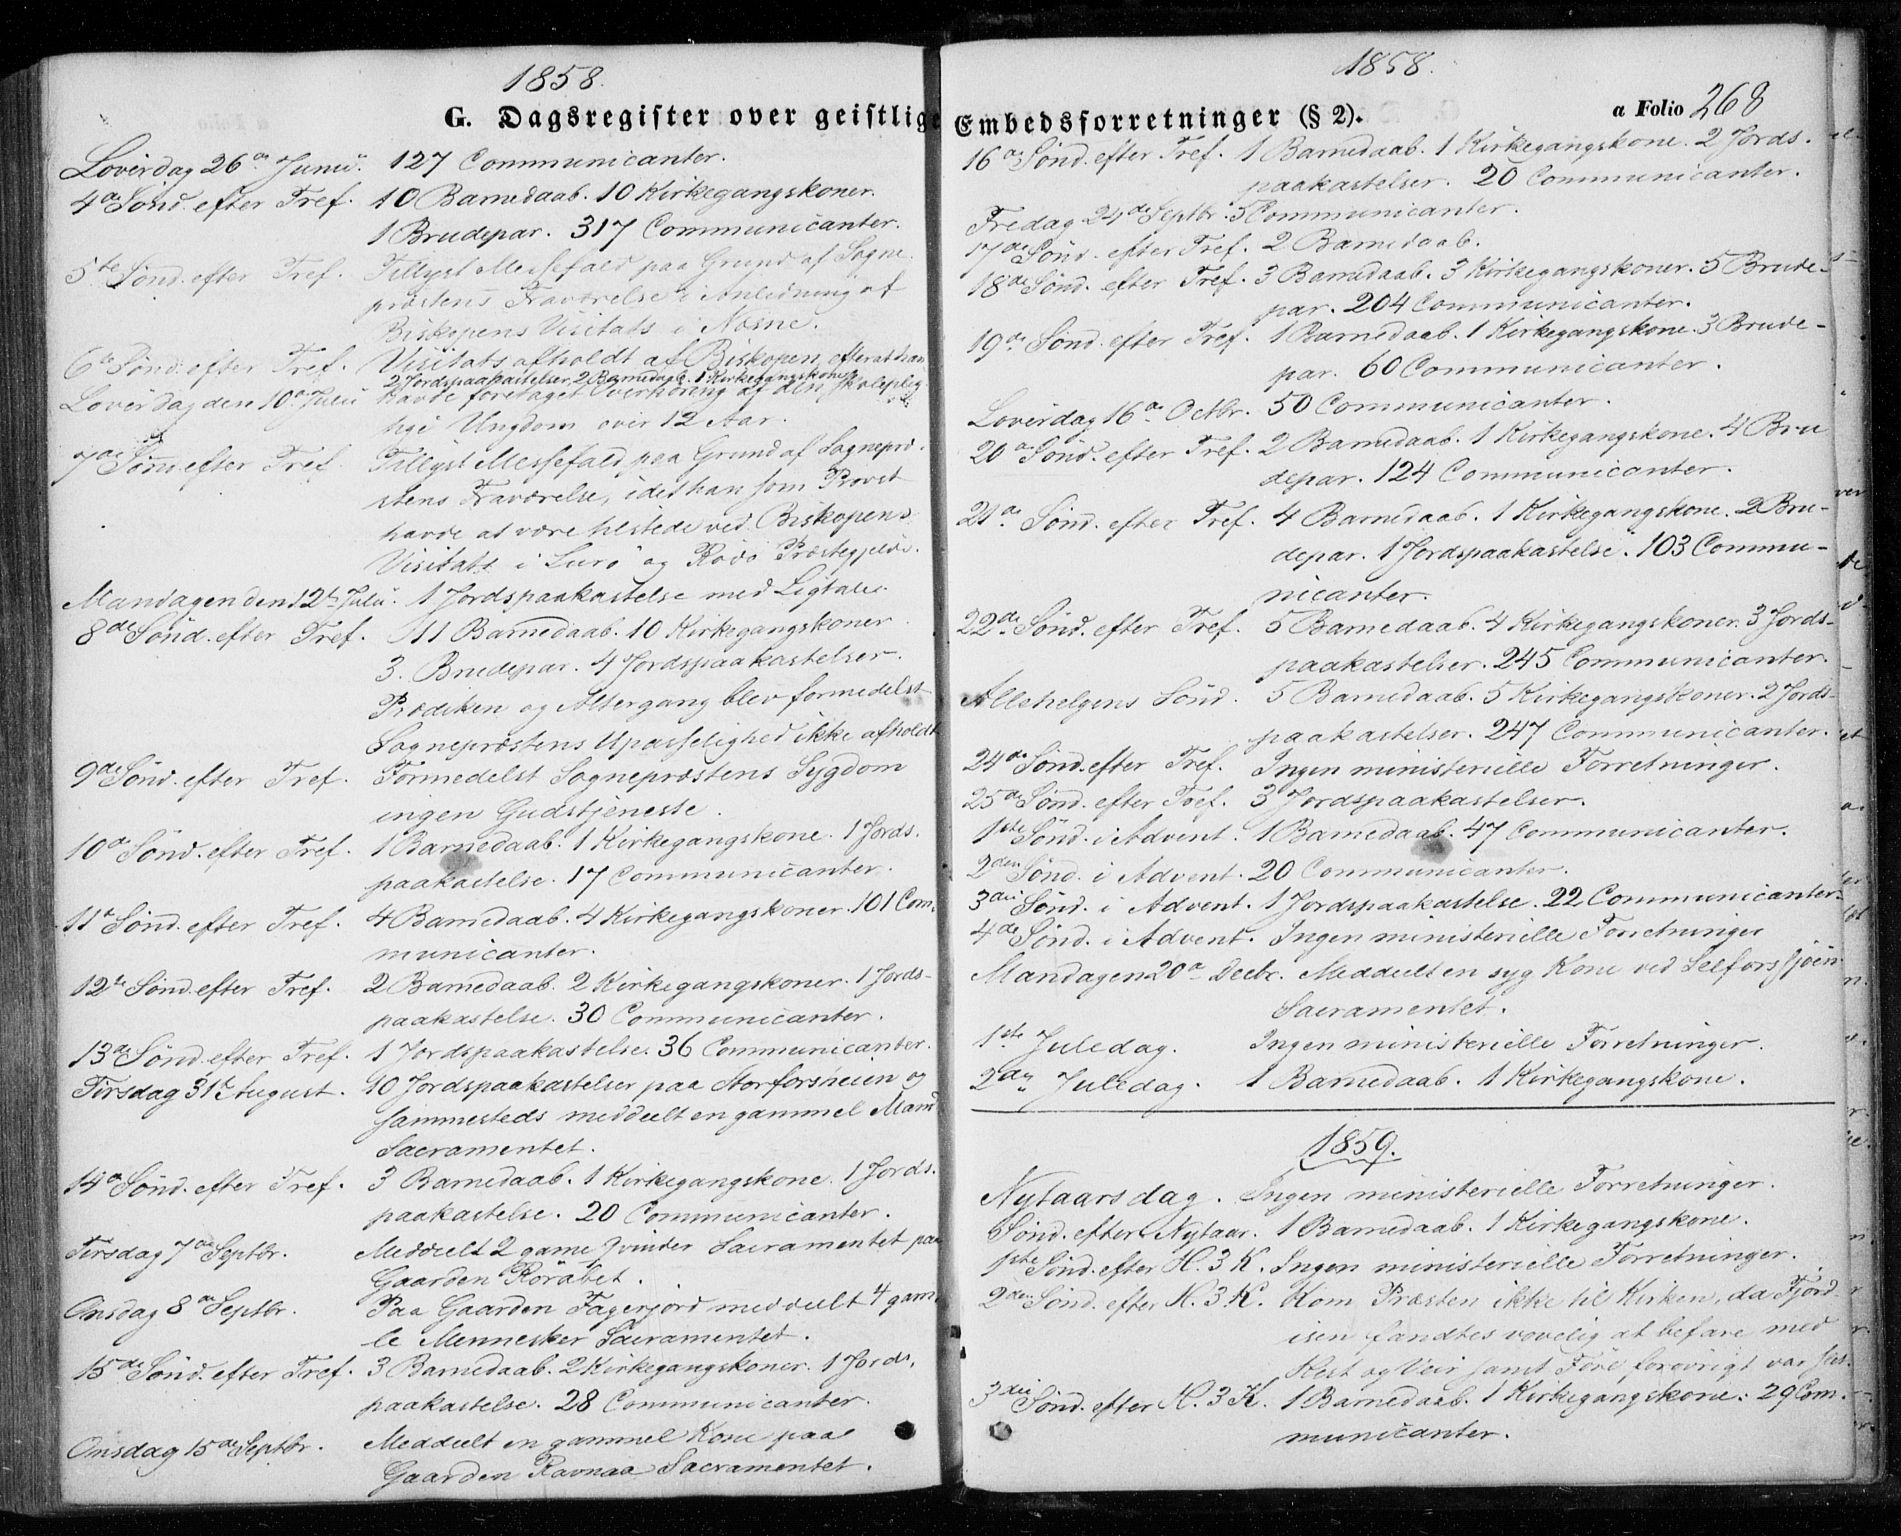 1858.
G. Dagsregister over geistlige
Løverdag 26de Junii. 127 Communicanter.
4de Sønd. efter Tref. 10 Barnedaab. 10 Kirkegangskoner.
1 Brudepar. 317 Communicanter.
5te Sønd. efter Tref. Tillyst Messefald paa Grund af Sogne-
præstens Fraværelse i Anledning af
Biskopens Visitats i Næsne.
6te Sønd. efter Tref. Visitats afholdt af Biskopen, efterat han
2 Jordspaakastelser, 2 Barnedaab. 1 Kirkegangskone
Løverdag den 10de Julii havde foretaget Overhøring af den skoleplig-
tige Ungdom over 12 Aar.
7de Sønd. efter Tref. Tillyst Messefald paa Grund af Sognepræ-
stens Fraværelse, idet han som Provst
havde at være tilstede ved Biskopens
Visitats i Lurø og Rødø Præstegjeld.
Mandagen den 12te Julii. 1 Jordspaakastelse med Ligtale.
8de Sønd. efter Tref. 11 Barnedaab. 10 Kirkegangskoner
3. Brudepar. 4 Jordspaakastelser.
Prædiken og Altergang blev formedelst
Sognepræstens Upasselighed ikke afholdt
9de Sønd. efter Tref. Formedelst Sognepræstens Sygdom
ingen Gudstjeneste.
10de Sønd. efter Tref. 1 Barnedaab. 1 Kirkegangskone. 1 Jords-
paakastelse. 17 Communicanter.
11te Sønd. efter Tref. 4 Barnedaab. 4 Kirkegangskoner. 101 Com-
municanter.
12te Sønd. efter Tref. 2 Barnedaab. 2 Kirkegangskoner. 1 Jords-
paakastelse. 30 Communicanter.
13de Sønd. efter Tref. 1 Jordspaakastelse. 36 Communicanter.
Tirsdag 31te August. 10 Jordspaakastelser paa Storforsheien og
sammesteds meddeelt en gammel Mand
Sacramentet.
14de Sønd. efter Tref. 3 Barnedaab. 1 Kirkegangskone. 1 Jords-
paakastelse. 20 Communicanter.
Tirsdag 7de Septbr. Meddeelt 2 gamle Qvinder Sacramentet paa
Gaarden Røråbet.
Onsdag 8de Septbr. Paa Gaarden Fagerjord meddeelt 4 gam-
le Mennesker Sacramentet.
15de Sønd. efter Tref. 3 Barnedaab. 2 Kirkegangskoner. 1 Jords-
paakastelse. 28 Communicanter.
Onsdag 15de Septbr. Meddeelt en gammel Kone paa
Gaarden Ravnaa Sacramentet.
1858.
Embedsforretninger (§ 2). a Folio 268
16de Sønd. efter Tref. 1 Barnedaab. 1 Kirkegangskone. 2 Jords-
paakastelser. 20 Communicanter.
Fredag 24de Septbr. 5 Communicanter.
17de Sønd. efter Tref. 2 Barnedaab.
18de Sønd. efter Tref. 3 Barnedaab. 3 Kirkegangskoner. 5 Brude-
par. 204 Communicanter.
19de Sønd. efter Tref. 1 Barnedaab. 1 Kirkegangskone. 3 Brude-
par. 60 Communicanter.
Løverdag 16de Octbr. 50 Communicanter.
20de Sønd. efter Tref. 2 Barnedaab. 1 Kirkegangskone. 4 Bru
depar. 124 Communicanter.
21de Sønd. efter Tref. 4 Barnedaab. 1 Kirkegangskone. 2 Bru-
depar. 1 Jordspaakastelse. 103 Commu-
nicanter.
22de Sønd. efter Tref. 5 Barnedaab. 4 Kirkegangskoner. 3 Jords-
paakastelser. 245 Communicanter.
Allehelgens Sønd. 5 Barnedaab. 5 Kirkegangskoner. 2 Jords-
paakastelser. 247 Communicanter.
24de Sønd. efter Tref. Ingen ministerielle Forretninger.
25de Sønd. efter Tref. 3 Jordspaakastelser.
1ste Sønd. i Advent. 1 Barnedaab. 47 Communicanter.
2den Sønd. i Advent. 20 Communicanter.
3die Sønd. i Advent. 1 Jordspaakastelse. 22 Communicanter.
4de Sønd. i Advent. Ingen ministerielle Forretninger
Mandagen 20de Decbr. Meddeelt en syg Kone ved Selforssjøen
Sacramentet.
1ste Juledag. Ingen ministerielle Forretninger.
2den Juledag. 1 Barnedaab. 1 Kirkegangskone.
1859.
Nytaarsdag. Ingen ministerielle Forretninger.
Sønd. efter Nytaar. 1 Barnedaab. 1 Kirkegangskone.
1ste Sønd. efter H. 3 K. Ingen ministerielle Forretninger.
2den Sønd. efter H. 3 K. Kom Præsten ikke til Kirken, da Fjord-
isen fandtes vovelig at befare med
Hest og Veir samt Føre forøvrigt var
3die Sønd. efter H. 3 K. 1 Barnedaab. 1 Kirkegangskone. 29 Com-
municanter.